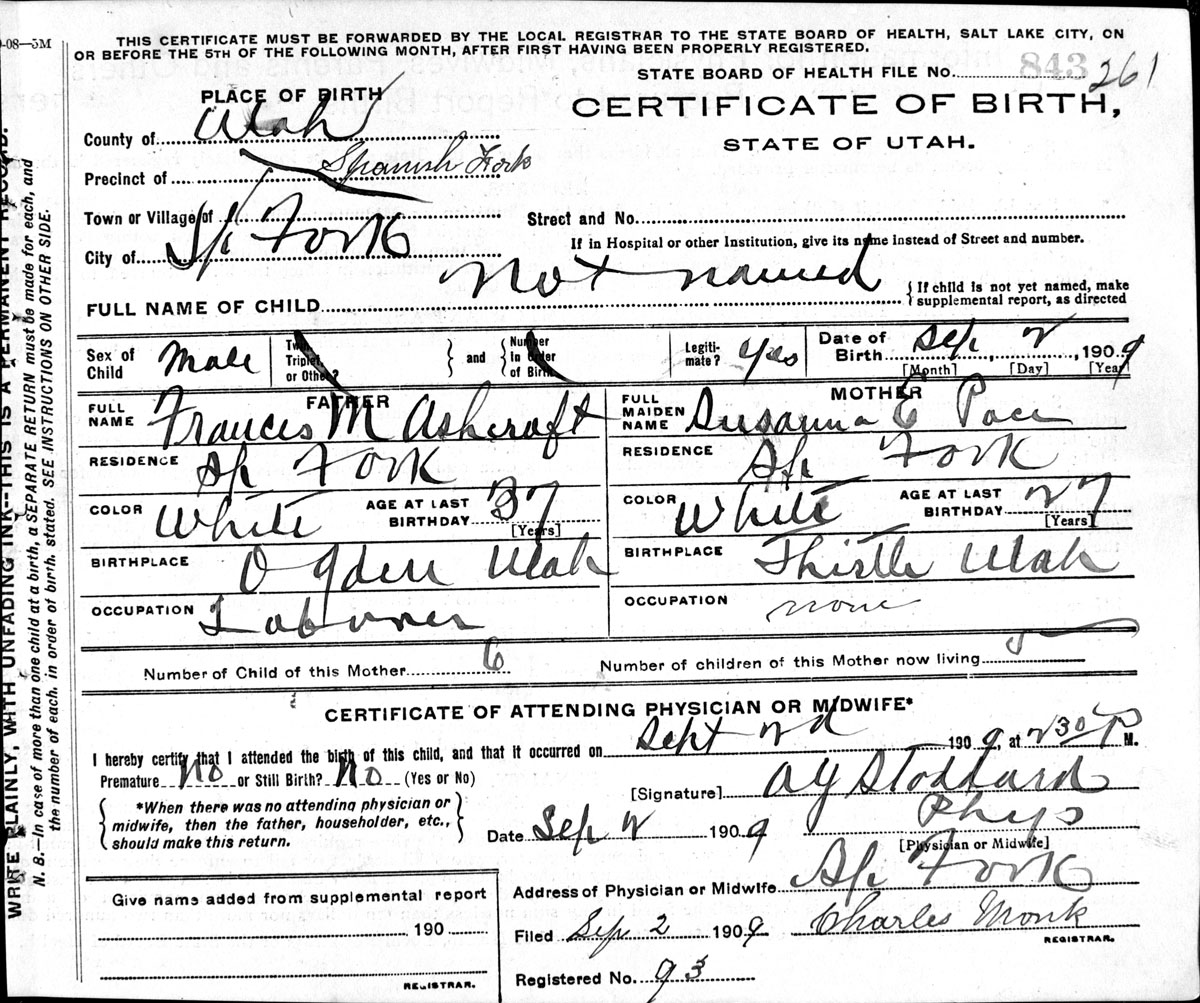 0-08—5M
THIS CERTIFICATE MUST BE FORWARDED BY THE LOCAL REGISTRAR TO THE STATE BOARD OF HEALTH, SALT LAKE CITY, ON
OR BEFORE THE 5TH OF THE FOLLOWING MONTH, AFTER FIRST HAVING BEEN PROPERLY REGISTERED.
STATE BOARD OF HEALTH FILE No. 843 261
PLACE OF BIRTH
CERTIFICATE OF BIRTH,
STATE OF UTAH.
County of Utah
Precinct of Spanish Fork
Town or Village of
Street and No.
City of Sp Fork
If in Hospital or other Institution, give its name instead of Street and number.
FULL NAME OF CHILD Not named
{If child is not yet named, make
supplemental report, as directed
Sex of Child Male
Twin, Triplet, or Other? } and { Number In Order of Birth
Legiti-mate? yes
Date of Birth Sep 2, 1909
[Month] [Day] [Year]
FATHER
FULL NAME Frances M Ashcraft
RESIDENCE Sp Fork
COLOR White AGE AT LAST BIRTHDAY 37 [Years]
BIRTHPLACE Ogden Utah
OCCUPATION Laborer
MOTHER
FULL MAIDEN NAME Susanna E Pace
RESIDENCE Sp Fork
COLOR White AGE AT LAST BIRTHDAY 27 [Years]
BIRTHPLACE Thistle Utah
OCCUPATION none
Number of Child of this Mother 6 Number of children of this Mother now living
CERTIFICATE OF ATTENDING PHYSICIAN OR MIDWIFE*
I hereby certify that I attended the birth of this child, and that it occurred on Sept 2d 1909, at 230 P M.
Premature No or Still Birth? No (Yes or No)
[Signature] A Y Stoddard
{ *When there was no attending physician or
midwife, then the father, householder, etc.,
should make this return. }
Date Sep 2 1909 Phys
[Physician or Midwife]
Address of Physician or Midwife Sp Fork
Give name added from supplemental report
190
REGISTRAR.
Filed Sep 2 1909 Charles Monk
REGISTRAR.
Registered No. 93
WRITE PLAINLY, WITH UNFADING INK--THIS IS A PERMANENT RECORD.
N. B.—In case of more than one child at a birth, a SEPARATE RETURN must be made for each, and
the number of each, in order of birth, stated. SEE INSTRUCTIONS ON OTHER SIDE.